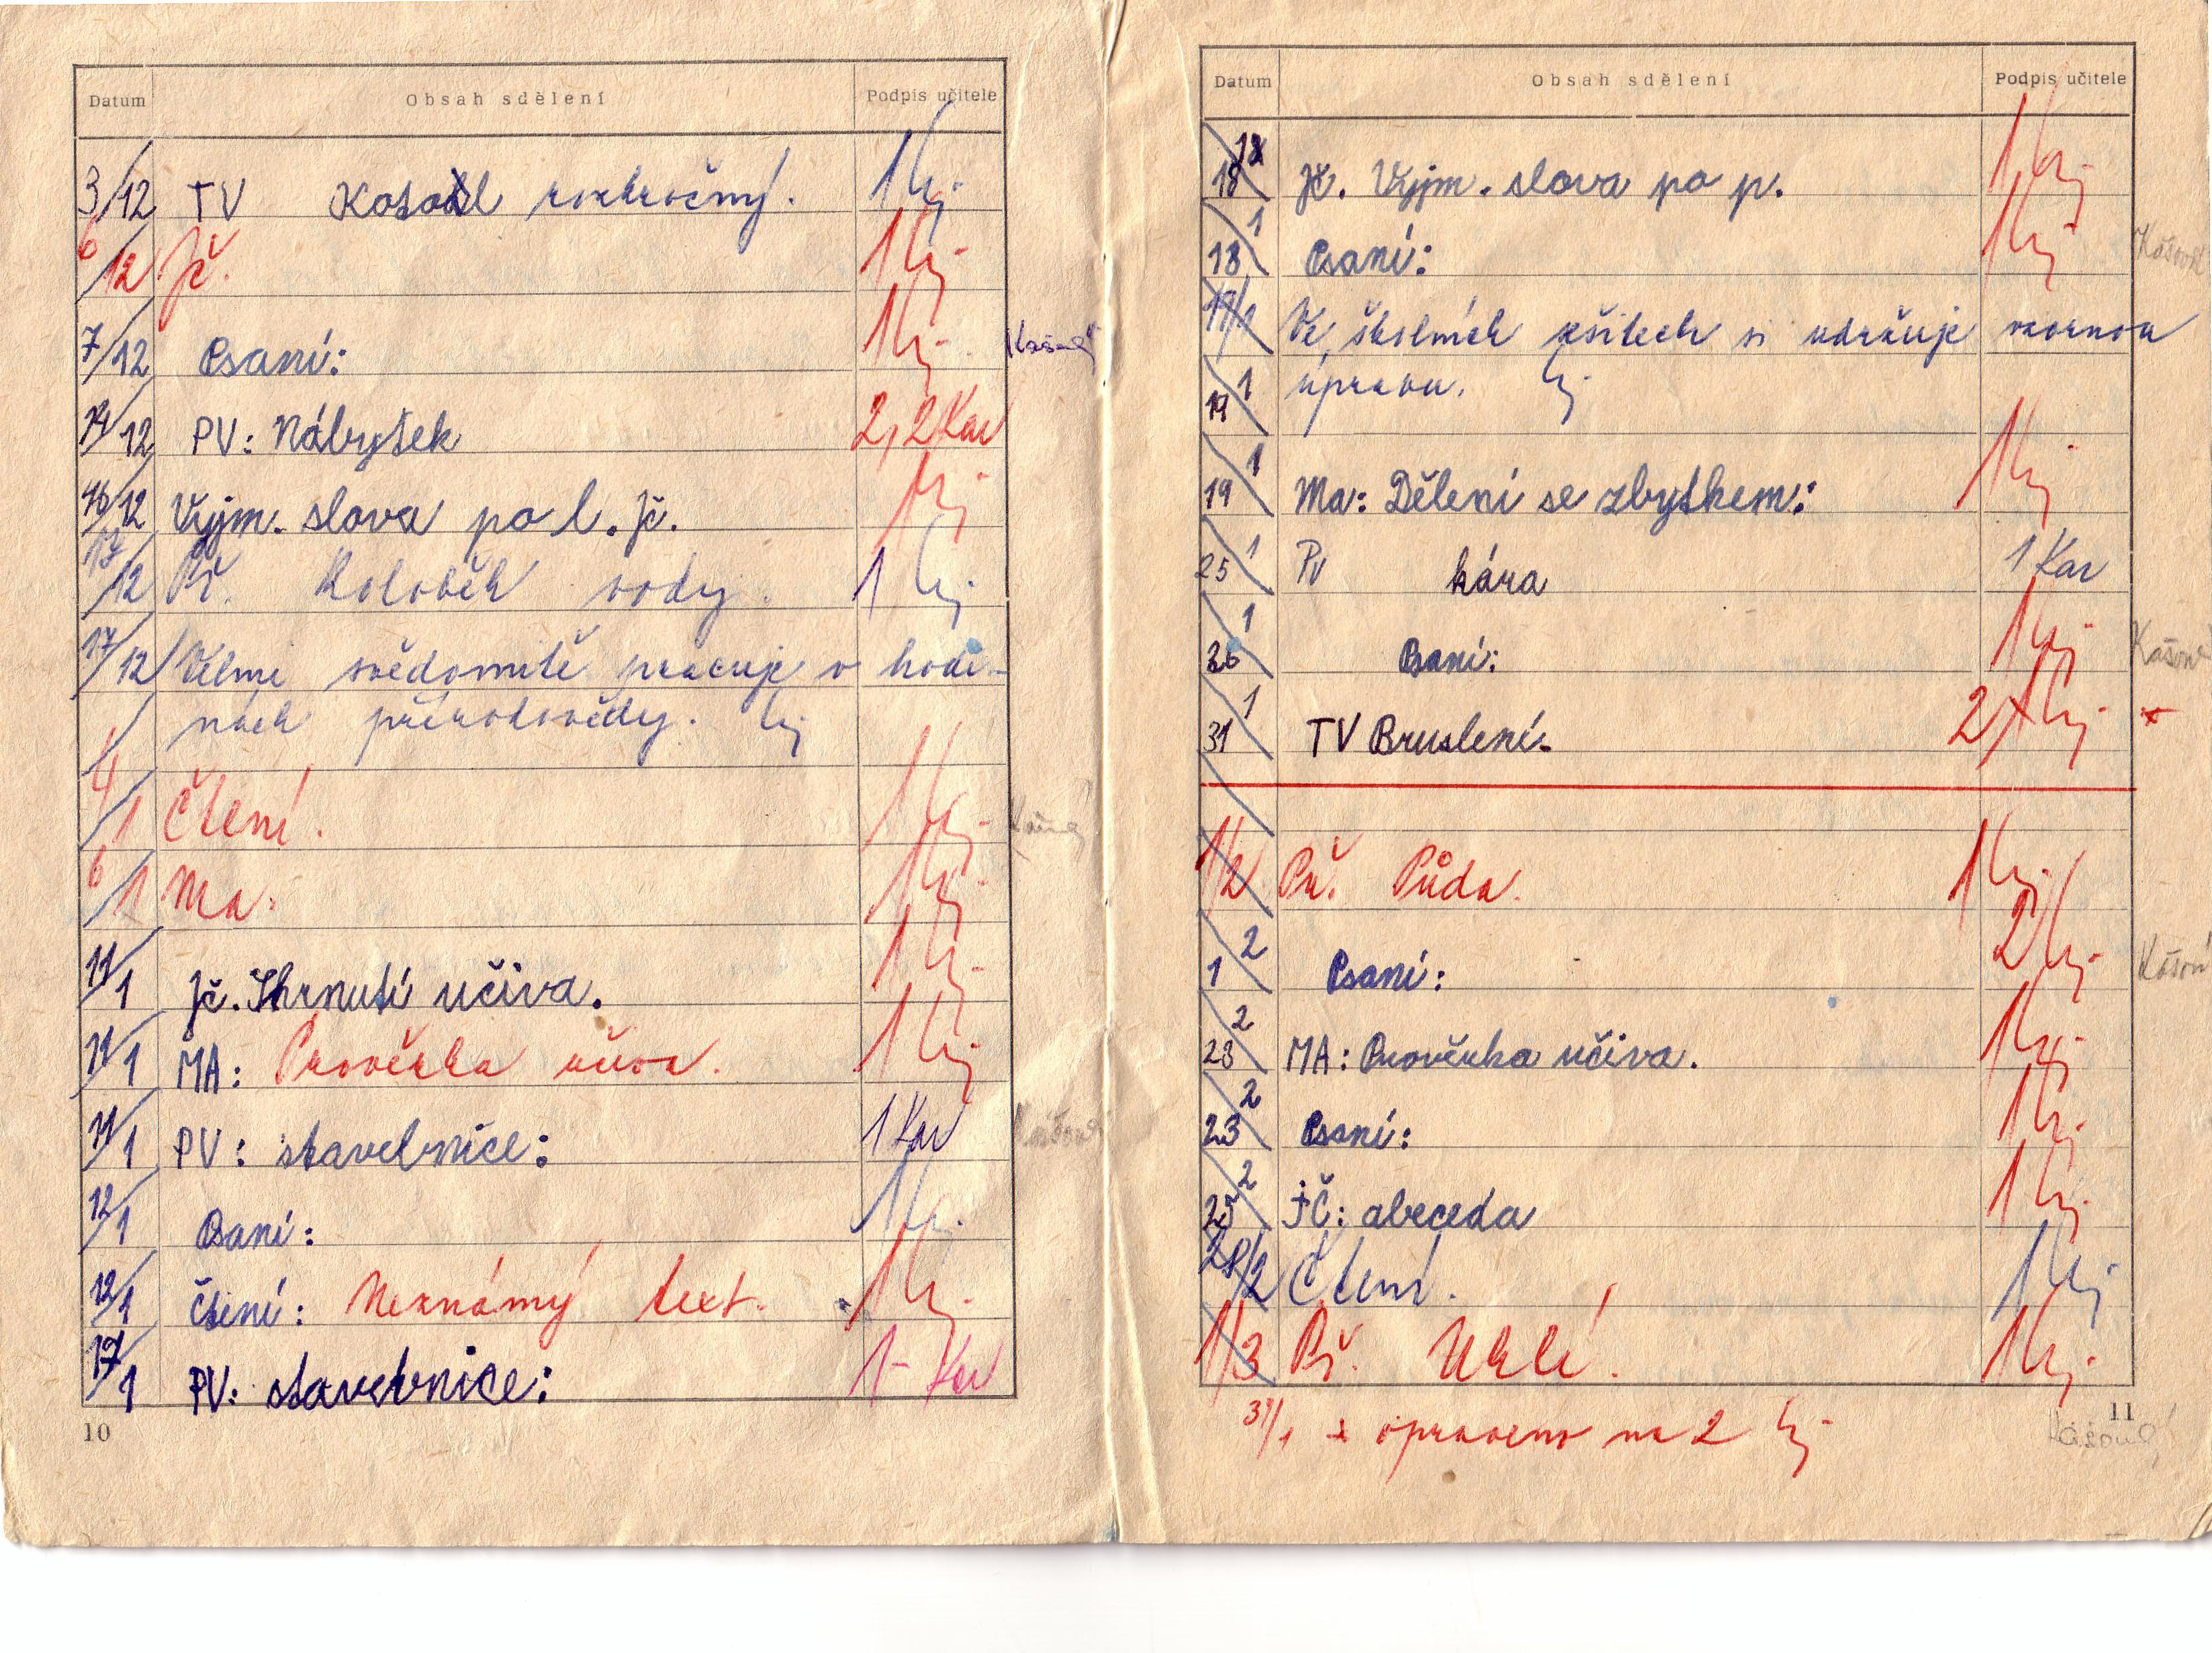 Datum Obsah sdělení Podpis učitele
3/12 TV Kotoul rozkročný. 1
6/12 Jč. 1
7/12 Psaní: 1
14/12 PV: Nábytek 2, 2 Kar
16/12 Vyjm. slova po l. Jč. 1
17/12 Př. Koloběh vody. 1
17/12 Velmi svědomitě pracuje v hodi-
nách přírodovědy.
4/1 Čtení. 1
6/1 Ma. 1
11/1 Jč. Shrnutí učiva. 1
11/1 MA: Prověrka učiva. 1
11/1 PV: stavebnice: 1 Kar
12/1 Psaní: 1
12/1 čtení: Neznámý text. 1
17/1 PV: stavebnice: 1- Kar
10
Datum Obsah sdělení Podpis učitele
18 Jč. Vyjm. slova po p. 1
18/1 Psaní: 1
19/1 Ve školních sešitech si udržuje vzornou
19/1 úpravu.
19/1 Ma: Dělení se zbytkem: 1
25/1 Pv kára 1 Kar
26/1 Psaní: 1
31/1 TV Bruslení. 2 x
1/2 Př. Půda. 1
1/2 Psaní: 2
23/2 MA: Prověrka učiva. 1
23/2 Psaní: 1
25/2 JČ: abeceda 1
28/2 Čtení. 1
1/3 Př. Uhlí. 1
31/1 x opraveno na 2
11